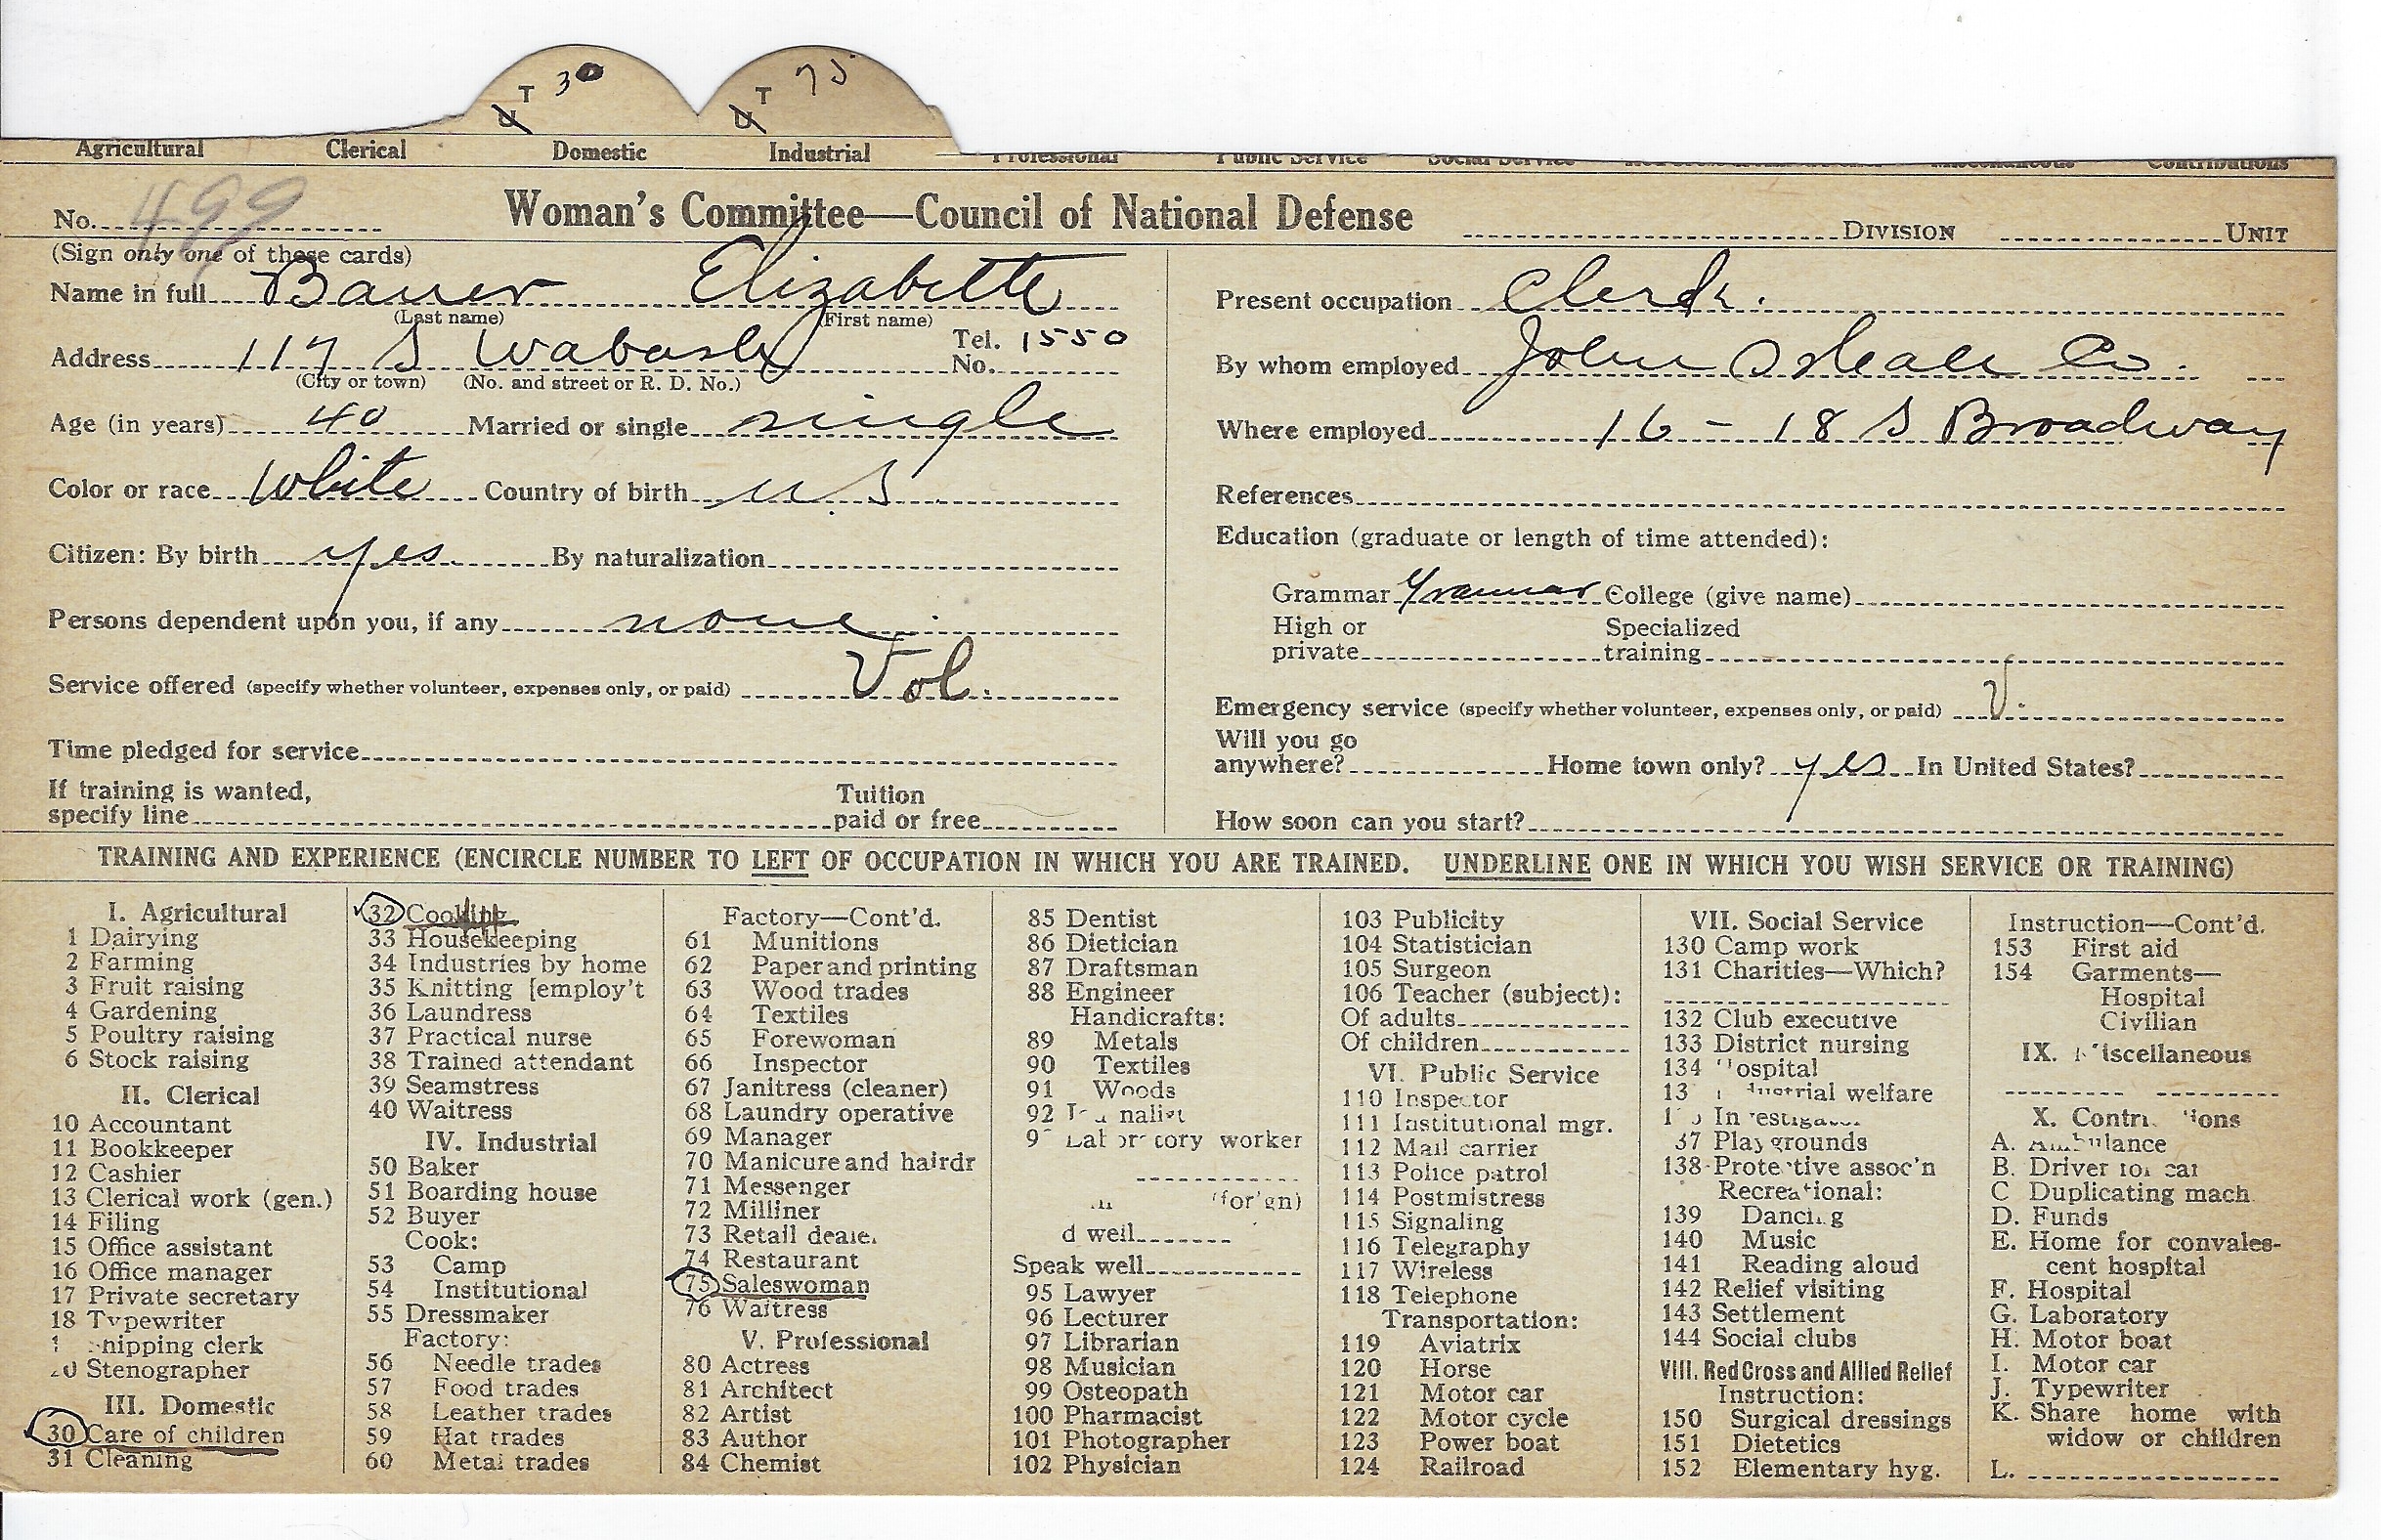 T 30 T 75
U U
Agricultural Clerical Domestic Industrial Professional Public Service Social Service Miscellaneous Contributions
No. 499 Woman's Committee—Council of National Defense DIVISION UNIT
(Sign only one of these cards)
Name in full Bauer Elizabette
(Last name) (First name)
Address 117 S Wabash Tel. No. 1550
(City or town) (No. and street or R. D. No.)
Age (in years) 40 Married or single single
Color or race White Country of birth U.S.
Citizen: By birth yes By naturalization
Persons dependent upon you, if any none
Service offered (specify whether volunteer, expenses only, or paid) Vol.
Time pledged for service
If training is wanted,
specify line Tuition paid or free
Present occupation Clerk.
By whom employed John Co.
Where employed 16 - 18 S Broadway
References
Education (graduate or length of time attended):
Grammar Grammar College (give name)
High or private Specialized training
Emergency service (specify whether volunteer, expenses only, or paid) V.
Will you go
anywhere? Home town only? yes In United States?
How soon can you start?
TRAINING AND EXPERIENCE (ENCIRCLE NUMBER TO LEFT OF OCCUPATION IN WHICH YOU ARE TRAINED. UNDERLINE ONE IN WHICH YOU WISH SERVICE OR TRAINING)
I. Agricultural
1 Dairying
2 Farming
3 Fruit raising
4 Gardening
5 Poultry raising
6 Stock raising
II. Clerical
10 Accountant
11 Bookkeeper
12 Cashier
13 Clerical work (gen.)
14 Filing
15 Office assistant
16 Office manager
17 Private secretary
18 Typewriter
shipping clerk
20 Stenographer
III. Domestic
30 Care of children
31 Cleaning
32 Cooking
33 Housekeeping
34 Industries by home
35 Knitting [employ't
36 Laundress
37 Practical nurse
38 Trained attendant
39 Seamstress
40 Waitress
IV. Industrial
50 Baker
51 Boarding house
52 Buyer
Cook:
53 Camp
54 Institutional
55 Dressmaker
Factory:
56 Needle trades
57 Food trades
58 Leather trades
59 Hat trades
60 Metal trades
Factory—Cont'd.
61 Munitions
62 Paper and printing
63 Wood trades
64 Textiles
65 Forewoman
66 Inspector
67 Janitress (cleaner)
68 Laundry operative
69 Manager
70 Manicure and hairdr
71 Messenger
72 Milliner
73 Retail dealer
74 Restaurant
75 Saleswoman
76 Waitress
V. Professional
80 Actress
81 Architect
82 Artist
83 Author
84 Chemist
85 Dentist
86 Dietician
87 Draftsman
88 Engineer
Handicrafts:
89 Metals
90 Textiles
91 Woods
92 Journalist
Laboratory worker
(foreign)
d well
Speak well
95 Lawyer
96 Lecturer
97 Librarian
98 Musician
99 Osteopath
100 Pharmacist
101 Photographer
102 Physician
103 Publicity
104 Statistician
105 Surgeon
106 Teacher (subject):
Of adults
Of children
VI. Public Service
110 Inspector
111 Institutional mgr.
112 Mail carrier
113 Police patrol
114 Postmistress
115 Signaling
116 Telegraphy
117 Wireless
118 Telephone
Transportation:
119 Aviatrix
120 Horse
121 Motor car
122 Motor cycle
123 Power boat
124 Railroad
VII. Social Service
130 Camp work
131 Charities—Which?
132 Club executive
133 District nursing
134 Hospital
Industrial welfare
Investigator
37 Playgrounds
138 Protective assoc'n
Recreational:
139 Dancing
140 Music
141 Reading aloud
142 Relief visiting
143 Settlement
144 Social clubs
VIII. Red Cross and Allied Relief
Instruction:
150 Surgical dressings
151 Dietetics
152 Elementary hyg.
Instruction—Cont'd.
153 First aid
154 Garments—
Hospital
Civilian
IX. Miscellaneous
X. Contributions
A. Ambulance
B. Driver for car
C Duplicating mach.
D. Funds
E. Home for convales-
cent hospital
F. Hospital
G. Laboratory
H. Motor boat
I. Motor car
J. Typewriter
K. Share home with
widow or children
L.